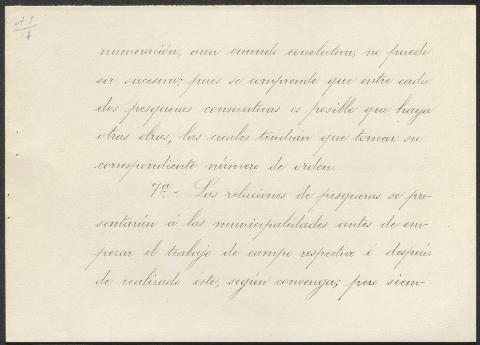 numeración, aun cuando correlativa, no puede
ser sucesiva; pues se comprende que entre cada
dos pesqueras consecutivas es posible que haya
otras obras, las cuales tendrán que tomar su
correspondiente número de orden.
7ª.- Las relaciones de pesqueras se pre-
sentarán á las municipalidades antes de em-
pezar el trabajo de campo respectivo ó después
de realizado éste, según convenga; pero siem-